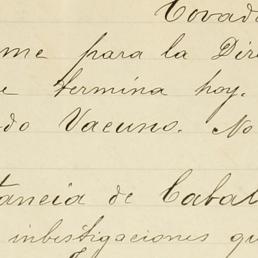 Covad
me para la Dir
e termina hoy.
do Vacuno. No
tancia de Cabal
inbestigaciones qu